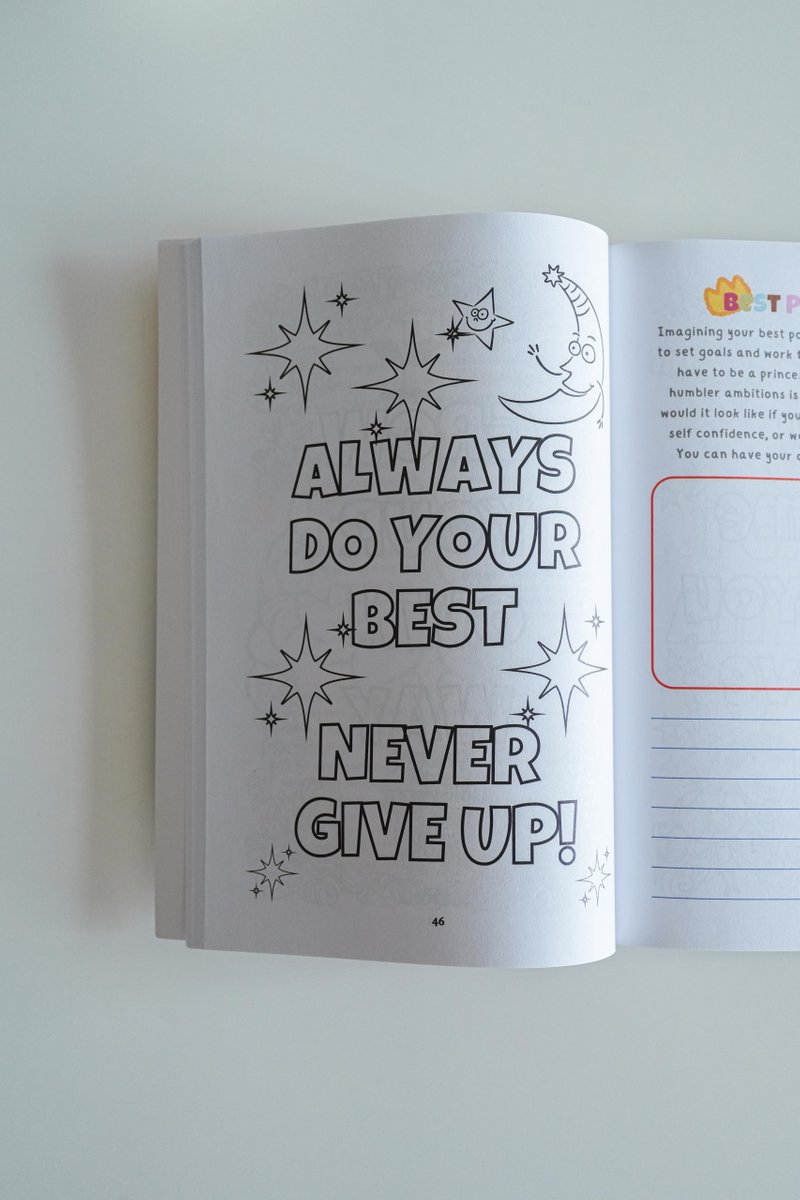 ALWAYS
DO YOUR
BEST
NEVER
GIVE UP!
46
BEST P
Imagining your best po
to set goals and work t
have to be a prince
humbler ambitions is
would it look like if you
self confidence, or w
You can have your